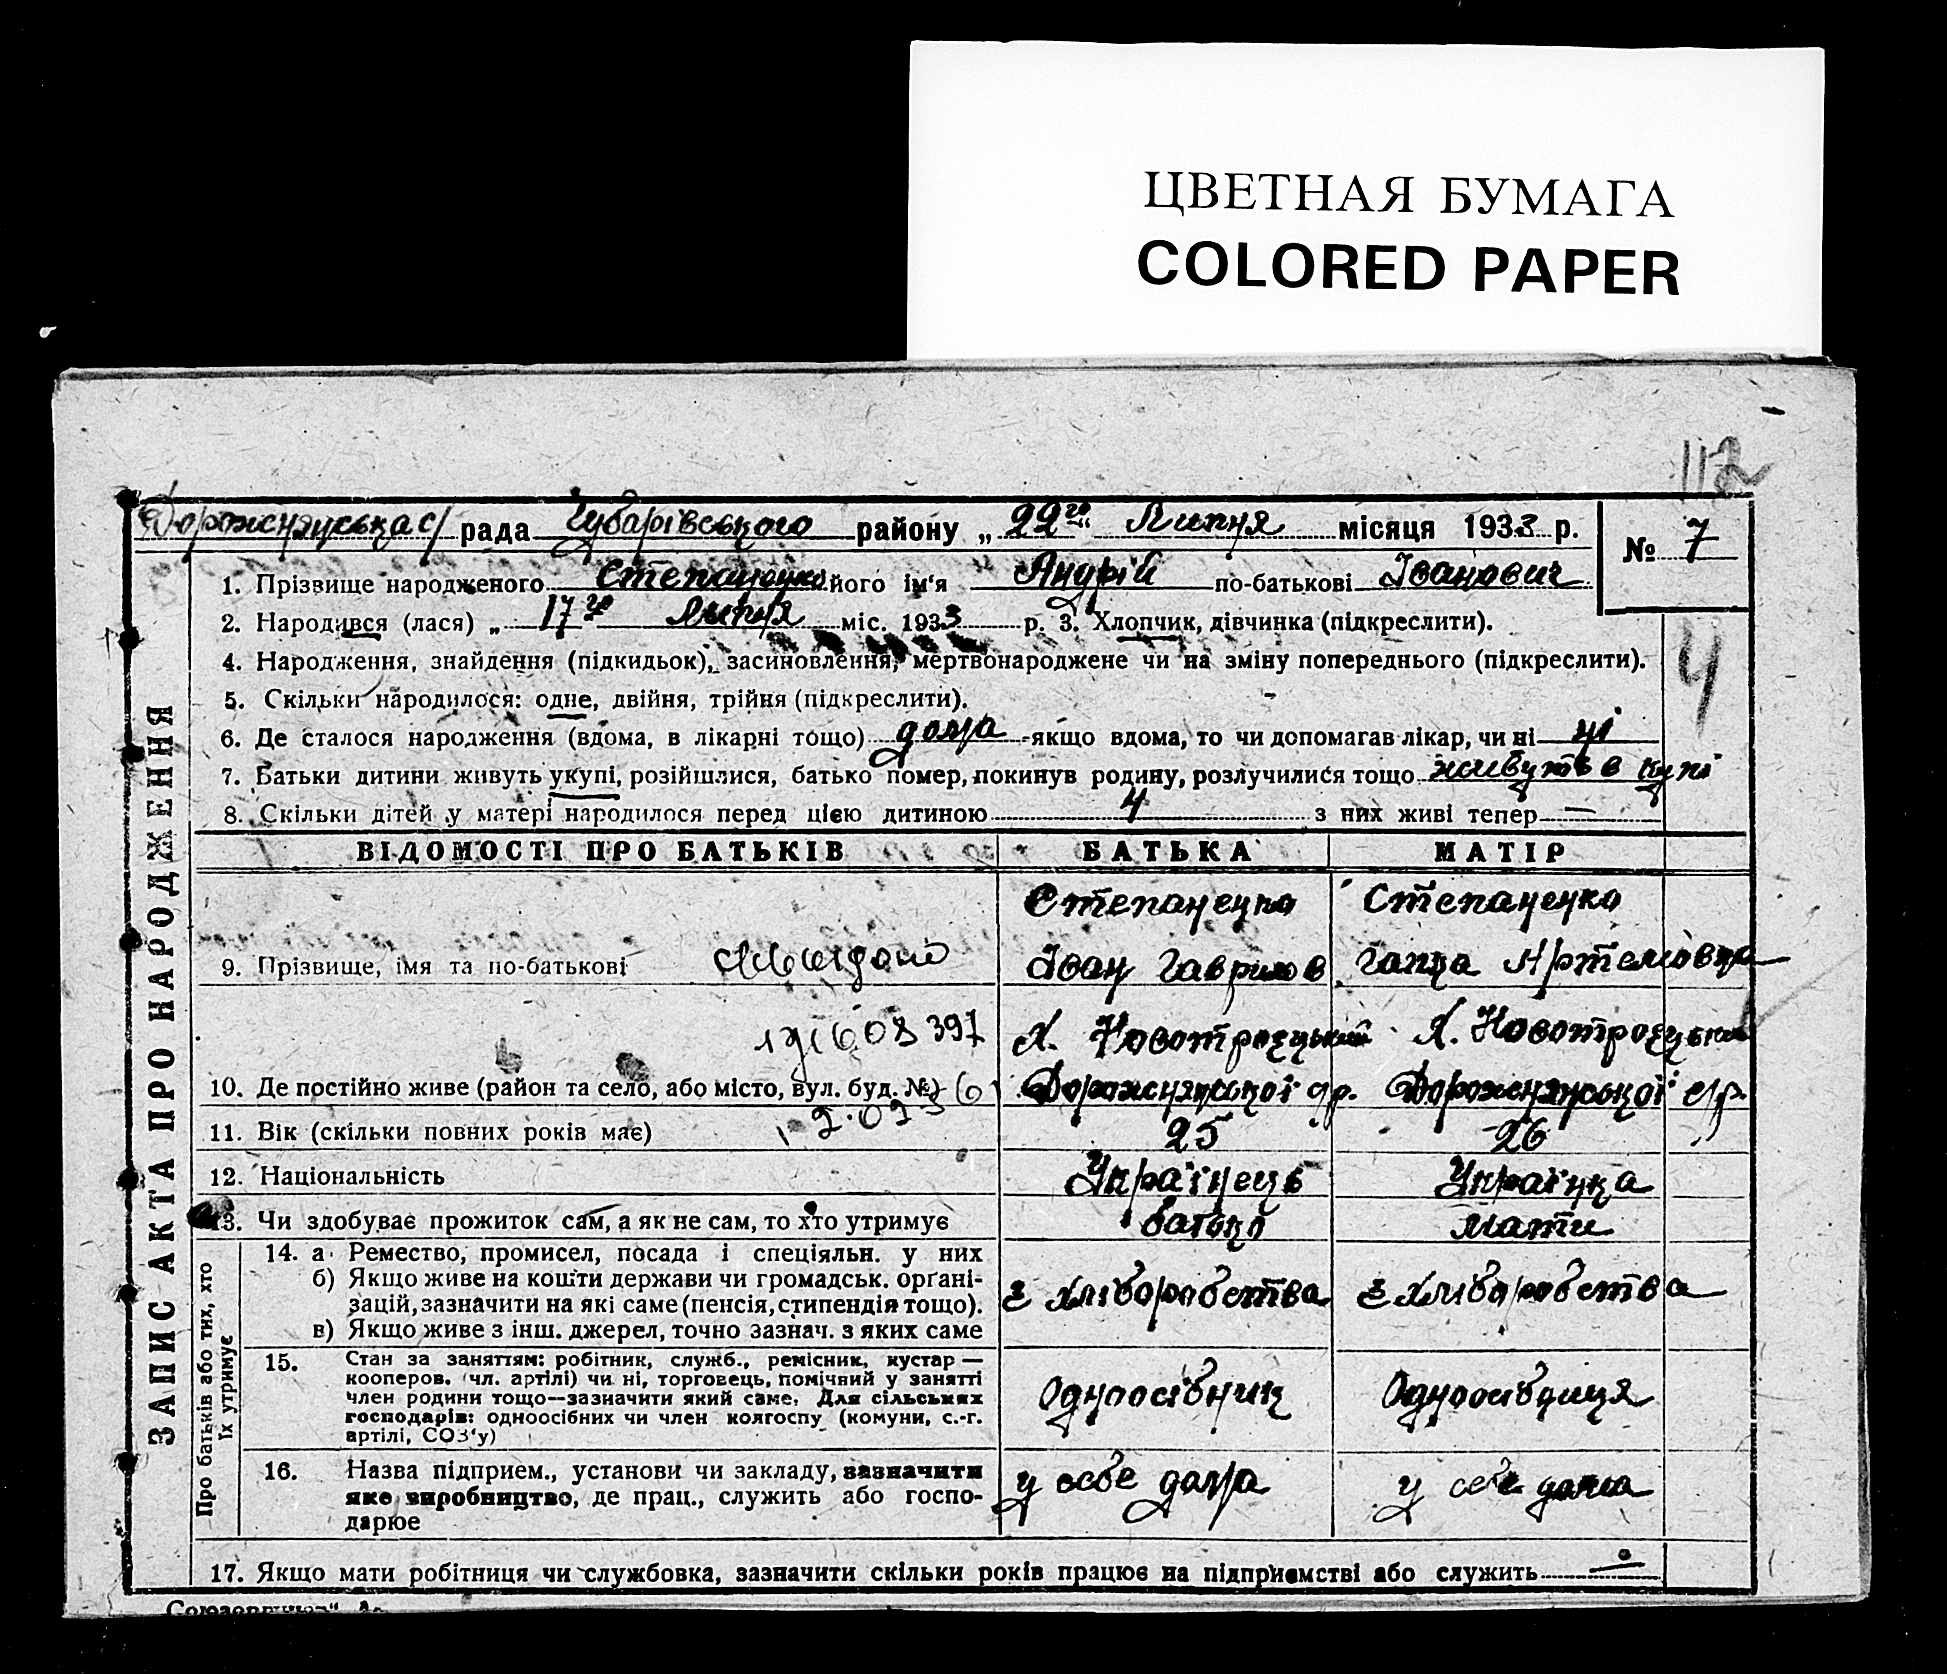 ЦВЕТНАЯ БУМАГА
COLORED PAPER
112
Дорожнянська с/ рада Чубарівського району „ 22го “ Липня місяця 1933 р.
№ 7
1. Прізвище народженого Степаненко його ім‘я Андрій по-батькові Іванович
2. Народився (лася) „ 17го липня міс. 1933 р. 3. Хлопчик, дівчинка (підкреслити).
4. Народження, знайдення (підкидьок), засиновлення, мертвонароджене чи на зміну попереднього (підкреслити).
4
5. Скільки народилося: одне, двійня, трійня (підкреслити).
6. Де сталося народження (вдома, в лікарні тощо) дома якщо вдома, то чи допомагав лікар, чи ні ні
7. Батьки дитини живуть укупі, розійшлися, батько помер, покинув родину, розлучилися тощо живуть в купі
8. Скільки дітей у матері народилося перед цією дитиною 4 з них живі тепер —
ЗАПИС АКТА ПРО НАРОДЖЕННЯ
ВІДОМОСТІ ПРО БАТЬКІВ БАТЬКА МАТІР
Степаненко Степаненко
9. Прізвище, імя та по-батькові Іван Гаврилов Ганна Артемовна
Х. Новотроецький Х. Новотроецький
10. Де постійно живе (район та село, або місто, вул. буд. №) Дорожнянської с/р. Дорожнянської с/р.
11. Вік (скільки повних років має) 25 26
12. Національність Українець Українка
13. Чи здобуває прожиток сам, а як не сам, то хто утримує батько мати
Про батьків або тих, хто
їх утримує
14. а Ремество, промисел, посада і спеціяльн. у них
б) Якщо живе на кошти держави чи громадськ. органі-
зацій, зазначити на які саме (пенсія, стипендія тощо).
в) Якщо живе з інш. джерел, точно зазнач. з яких саме
з хліборобства з хліборобства
15. Стан за заняттям: робітник, служб., ремісник, кустар —
кооперов. (чл. артілі) чи ні, торговець, помічний у занятті
член родини тощо—зазначити який саме. Для сільських
господарів: одноосібних чи член колгоспу (комуни, с.-г.
артілі, СОЗ‘у)
Одноосібник Одноосібниця
16. Назва підприєм., установи чи закладу, зазначити
яке виробництво, де прац., служить або госпо-
дарює
у себе дома у себе дома
17. Якщо мати робітниця чи службовка, зазначити скільки років працює на підприємстві або служить